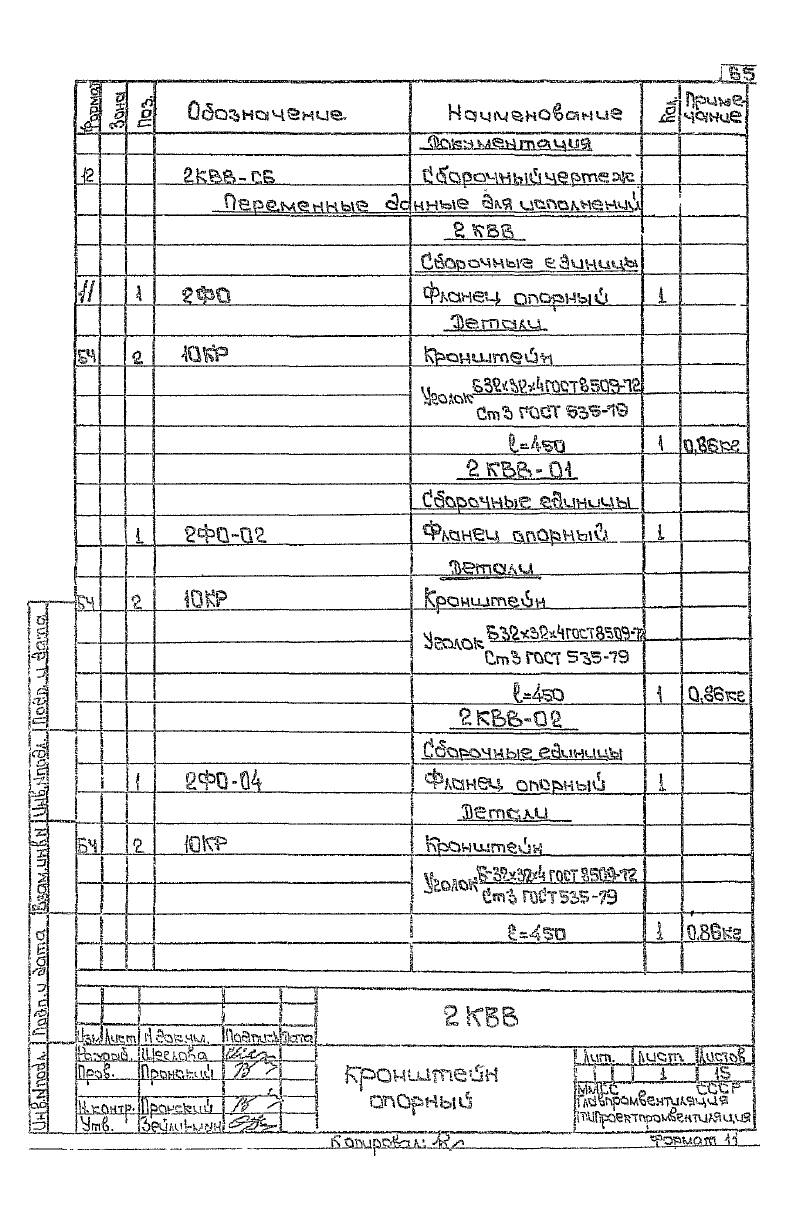 65
Формат Зона Поз. Обозначение Наименование Кол. Приме-
чание
Документация
12 2КВВ-СБ Сборочный чертеж
Переменные данные для исполнений
2 КВВ
Сборочные единицы
11 1 2ФО Фланец опорный 1
Детали
БЧ 2 10КР Кронштейн
Уголок Б32х32х4 ГОСТ 8509-72
Ст3 ГОСТ 535-79
ℓ=450 1 0,86кг
2 КВВ-01
Сборочные единицы
1 2ФО-02 Фланец опорный 1
Детали
БЧ 2 10КР Кронштейн
Уголок Б32х32х4 ГОСТ 8509-72
Ст3 ГОСТ 535-79
ℓ=450 1 0,86кг
2 КВВ-02
Сборочные единицы
1 2ФО-04 Фланец опорный 1
Детали
БЧ 2 10КР Кронштейн
Уголок Б-32х32х4 ГОСТ 8509-72
Ст3 ГОСТ 535-79
ℓ=450 1 0,86кг
Инв.Nподл. Подп. и дата Взам.инв.N Инв.Nдубл. Подп. и дата
2 КВВ
Изм Лист N докум. Подпись Дата
Разраб. Щеглова
Пров. Пронский
Н.контр. Пронский
Утв.
Кронштейн
опорный
Лит. Лист Листов
1 15
ММСС СССР
Главпромвентиляция
ГПИПроектпромвентиляция
Копировал: Формат 11